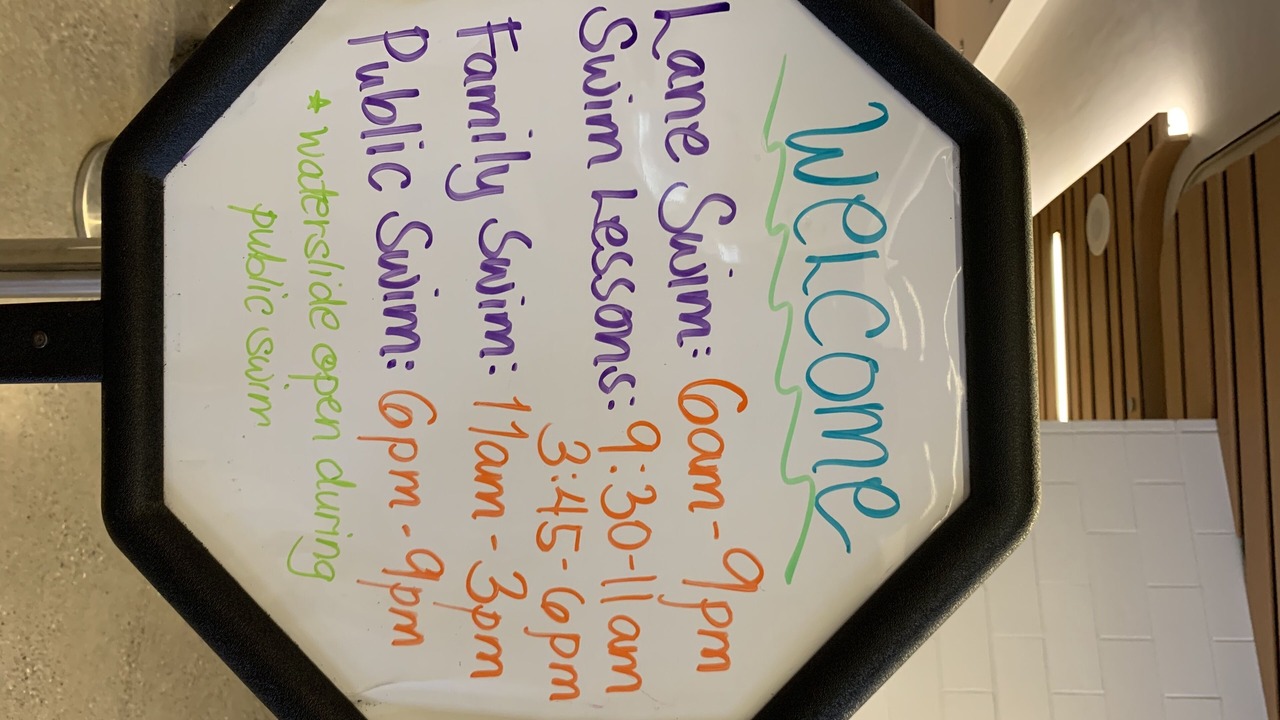 Welcome
Lane Swim: 6am-9pm
Swim Lessons: 9:30-11am
3:45-6pm
Family Swim: 11am-3pm
Public Swim: 6pm-9pm
* waterslide open during
public swim